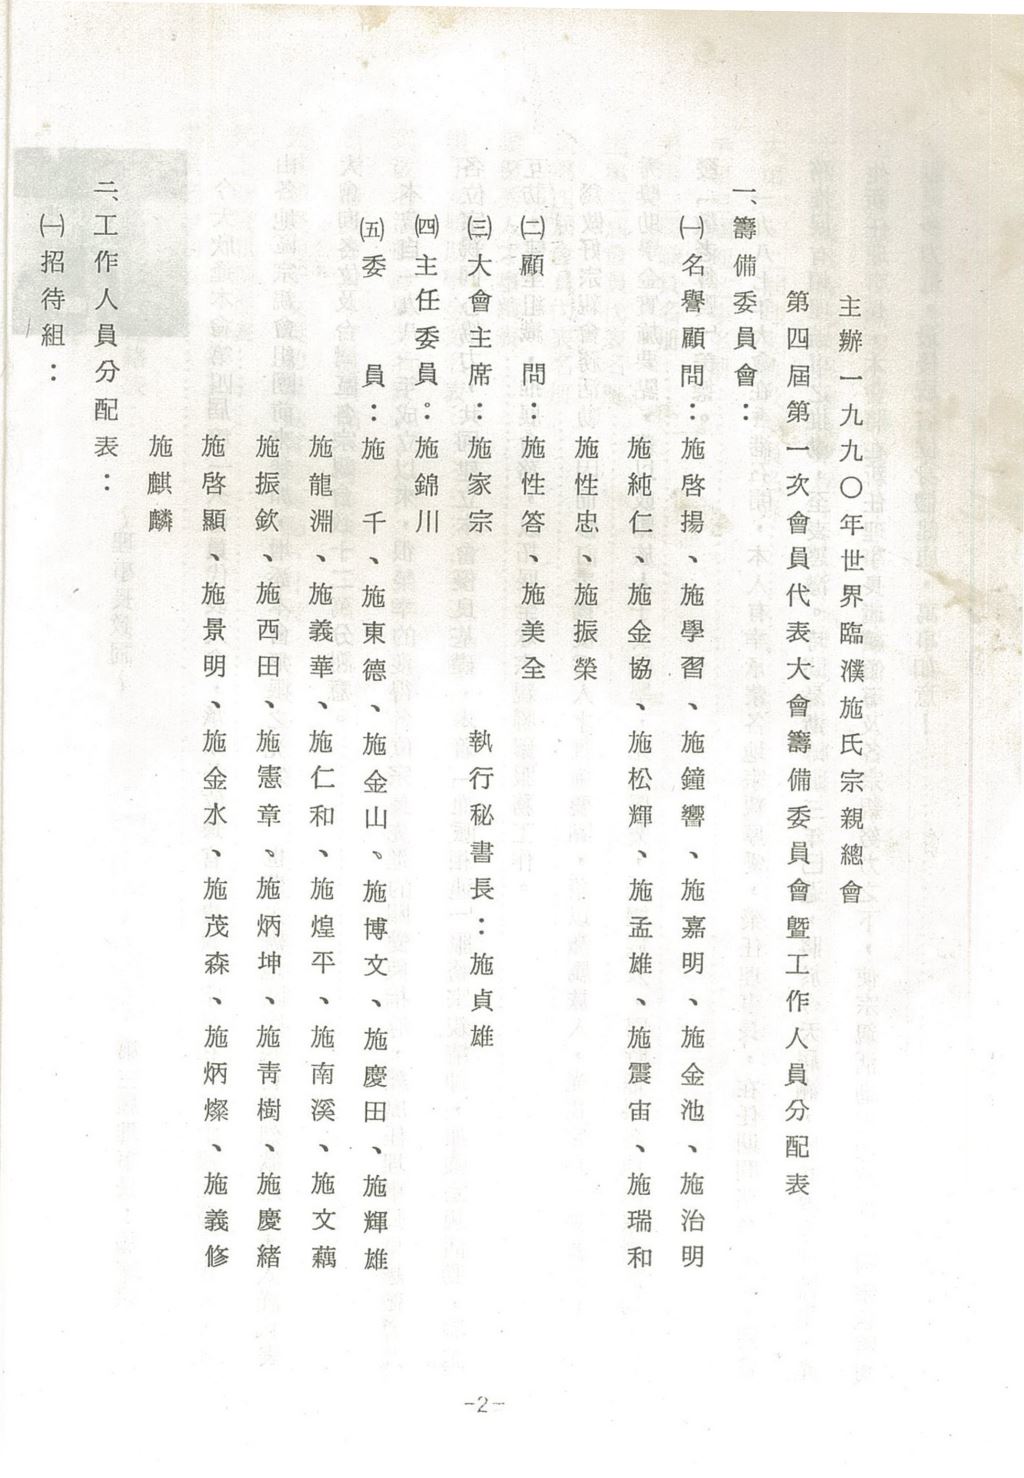 主辦一九九〇年世界臨濮施氏宗親總會
第四屆第一次會員代表大會籌備委員會暨工作人員分配表
一、籌備委員會：
㈠名譽顧問：施啓揚、施學習、施鐘響、施嘉明、施金池、施治明
施純仁、施金協、施松輝、施孟雄、施震宙、施瑞和
施性忠、施振榮
㈡顧　　問：施性答、施美全
㈢大會主席：施家宗　　　執行秘書長：施貞雄
㈣主任委員：施錦川
㈤委　　員：施　千、施東德、施金山、施博文、施慶田、施輝雄
施龍淵、施義華、施仁和、施煌平、施南溪、施文藕
施振欽、施西田、施憲章、施炳坤、施靑樹、施慶緒
施啓顯、施景明、施金水、施茂森、施炳燦、施義修
施麒麟
二、工作人員分配表：
㈠招待組：
-2-